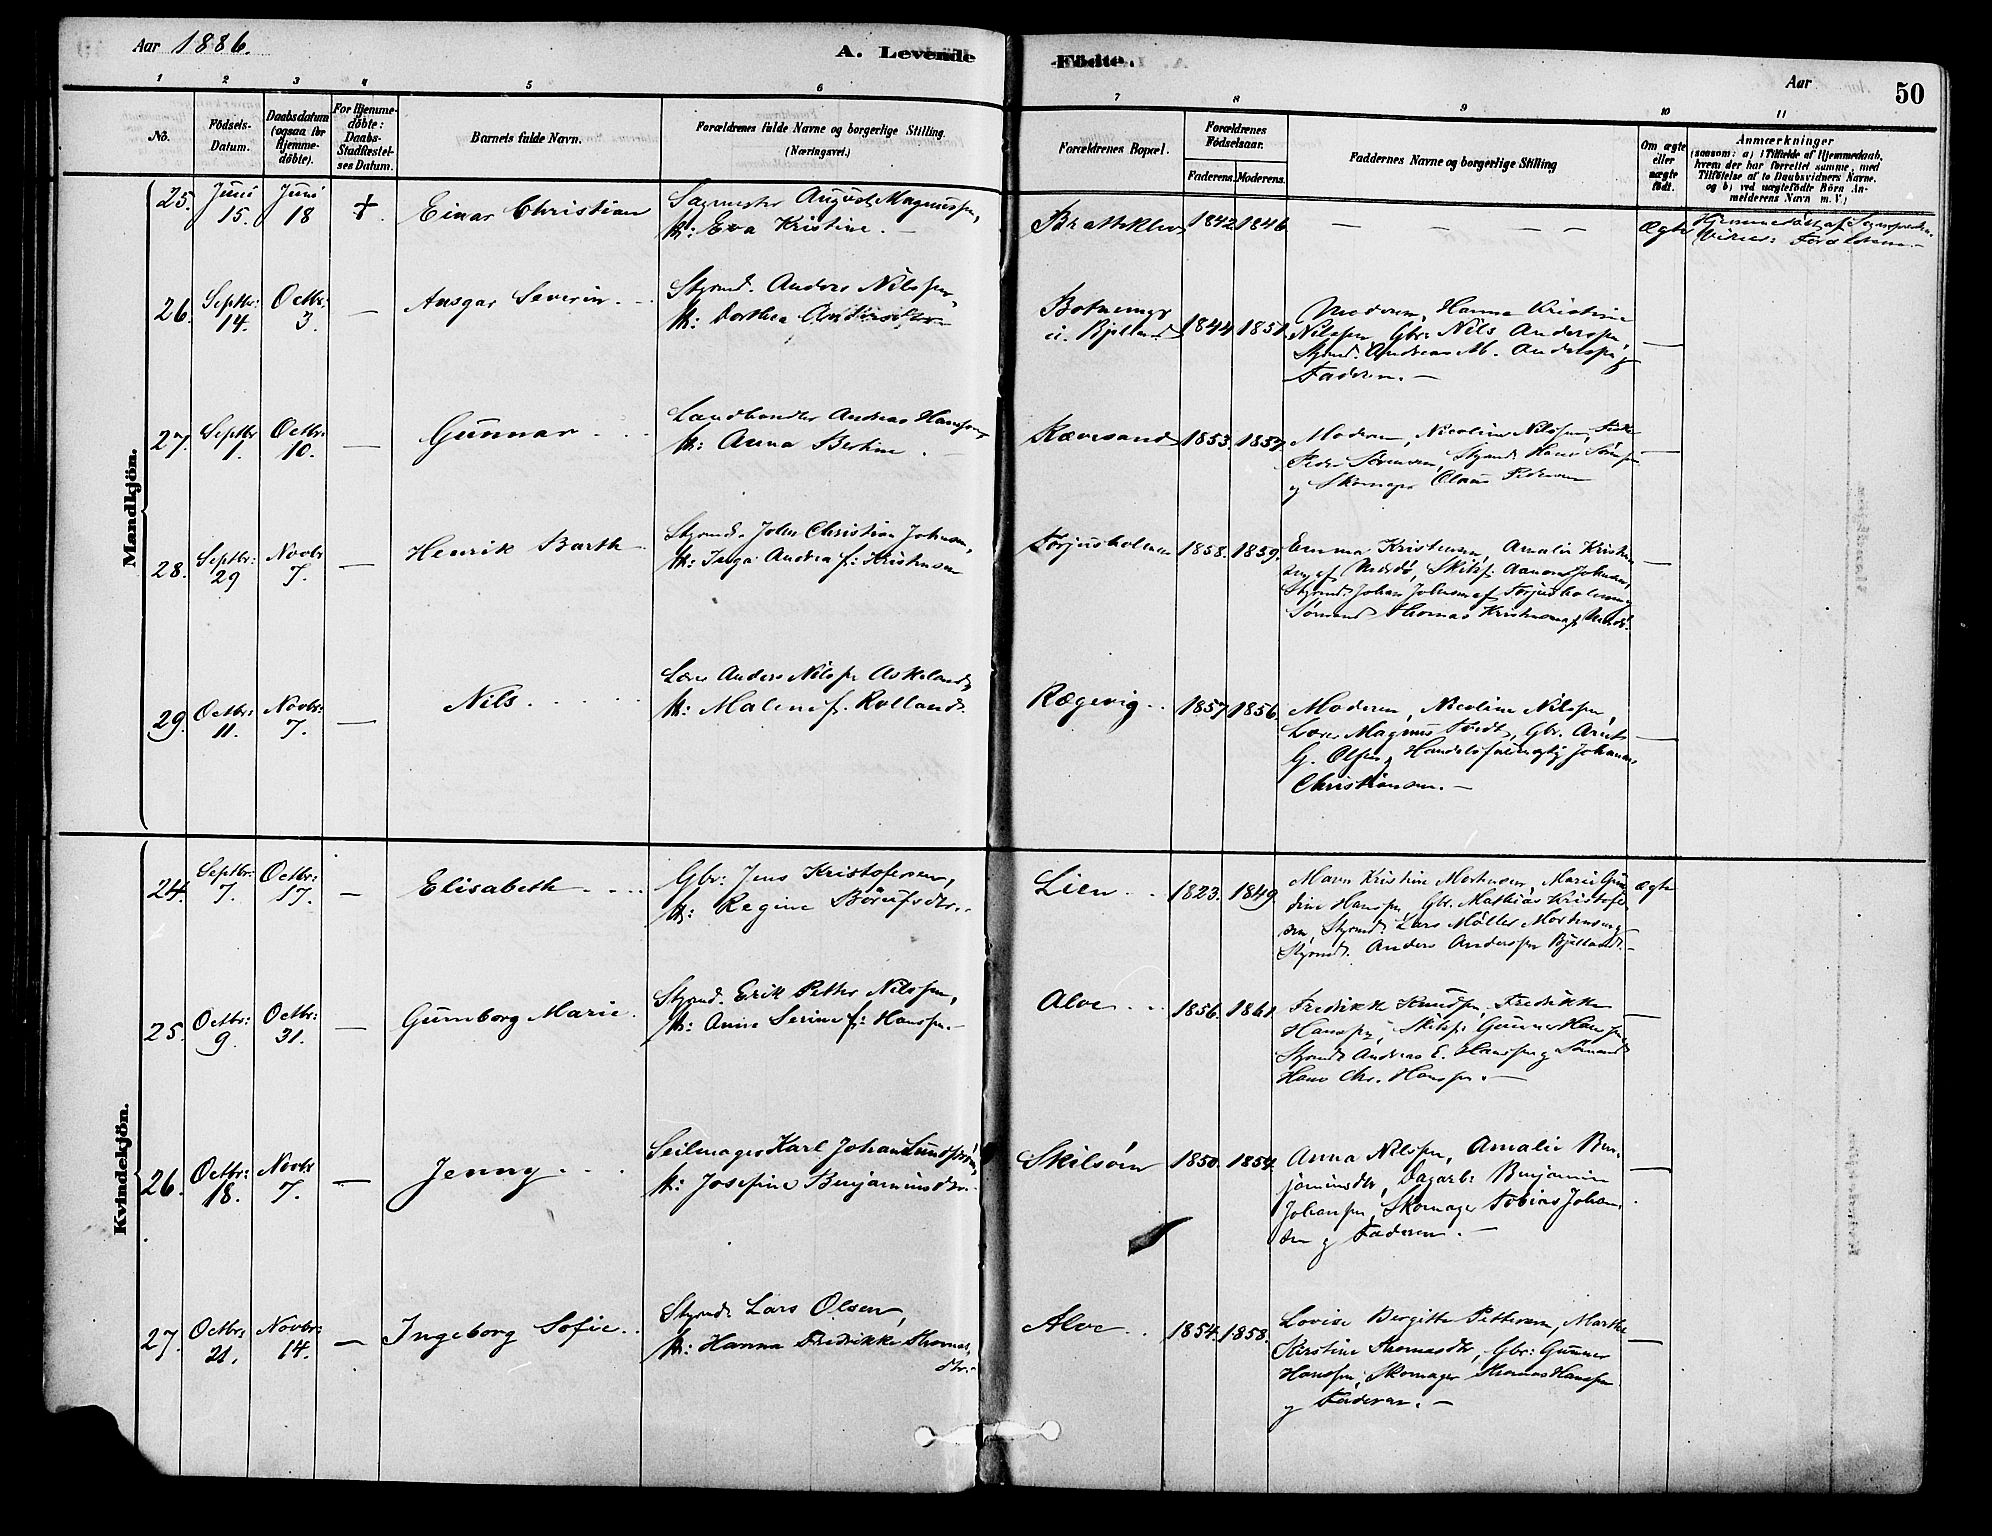 Aar 1886.
A. Levende Födte.
Aar
50
1 2 3 4 5 6 7 8 9 10 11
No.
Födsels-Datum.
Daabsdatum (ogsaa for Hjemme-döbte).
For Hjemme-döbte: Daabs-Stadfæstel-ses Datum.
Barnets fulde Navn.
Forældrenes fulde Navne og borgerlige Stilling. (Næringsvei.)
Forældrenes Bopæl.
Forældrenes Födselsaar.
Faderens. Moderens.
Faddernes Navne og borgerlige Stilling
Om ægte eller uægte födt.
Anmærkninger
(saasom: a) i Tilfælde af Hjemmedaab,
hvem der har forrettet samme, med
Tilföielse af to Daabsvidners Navne.
og b) ved uægtefödte Börn An-
melderens Navn m. V.)
Mandkjön.
25. Juni 15. Juni 18 + Einar Christian
Sagmester August Magnussen,
k: Eva Kristine. —
Brattekleiv 1842 1846 — — — — Ægte
Hjemmedöbt af Sognepresten.
Vidner: Forældrene. —
26. Septbr: 14. Octbr: 3. — Ansgar Severin. —
Styrmd. Anders Nilssen,
k: Dorthea
i. Bjelland 1844 1851.
Moderen, Hanna Kristine
Nilssen, Gbr: Nils Anderssen,
Styrmd. Andreas M. Anderssen og
Faderen. —
27. Septbr 1. Octbr: 10. — Gunnar . . .
Landhandler Andreas Hanssen,
k: Anna Bertine . —
Rævesand 1853. 1857.
Moderen, Nicoline Nilssen,
Peder Sörensen, Styrmd. Hans
og Skomager Olaus Pedersen —
28. Septbr: 29 Novbr 7. — Henrik Barth
Styrmd. John Christian Johnsen,
k: Inga Andrea f: Kristensen
Torjusholmen 1858. 1859.
Emma Kristensen, Amalie Kristen-
sen af Merdö, Skibsf. Aanon Johnsen,
Styrmd. Johan Johnsen af Torjusholmen og
Sömand Thomas Kristensen af Merdö. —
29. Octbr: 11. Novbr: 7. — Nils. . . . .
Lærer Anders Nilssen Askeland,
k: Malene f. Rolland.
Rægevig. . 1857 1856.
Moderen, Nicoline Nilssen,
Lærer Magnus Tvedt, Gbr. Arnt
G. Olsen, Handelsfuldmægtig Johannes
Christiansen. —
Kvindekjön.
24. Septbr: 7. Octbr: 17. — Elisabeth . . . .
Gbr: Jens Kristofersen,
k: Regine Börufsdtr. .
Lien . . 1823. 1849.
Maren Kristine Mortensen, Marie Gun-
dine Hanssen, Gbr. Mathias Kristofer-
sen, Styrmd. Lars Möller Mortensen og
Styrmd. Anders Anderssen Bjelland. — ægte
25. Octbr: 9. Octbr: 31. — Gunborg Marie.
Styrmd. Erik Petter Nilssen,
k: Anne Serine f: Hanssen. —
Alve . . 1856. 1861
Fredrikke Knudsen, Fredrikke
Hanssen, Skibsf. Gunner Hanssen,
Styrmd. Andreas E. Hanssen og Sömand
Hans Chr. Hanssen. —
26. Octbr: 18. Novbr 7. — Jenny . . .
Seilmager Karl Johan Lundström,
k: Josefine Benjaminsdtr.
Skilsöen 1850. 1854.
Anna Nilssen, Amalie Ben-
jaminsdtr, Dagarb: Benjamin
Johansen, Skomager Tobias Johan-
sen og Faderen. —
27. Octbr. 21. Novbr: 14. — Ingeborg Sofie. .
Styrmd. Lars Olsen,
k: Hanna Fredrikke Thomas-
dtr. —
Alve . . 1854. 1858.
Lovise Bergitte Pettersen, Marthe
Kirstine Thomasdtr, Gbr: Gunner
Hanssen, Skomager Thomas Hanssen
og Faderen. —